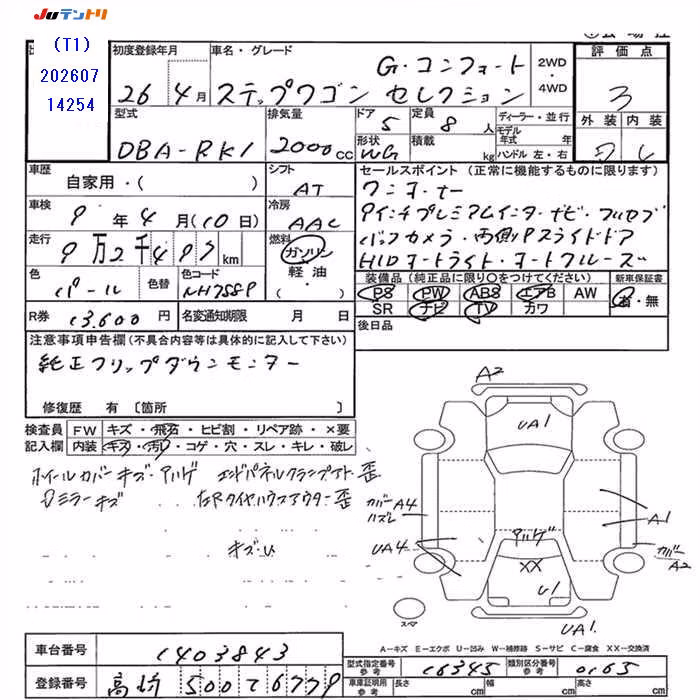 JUテントリ
(T1)
202607
14254
初度登録年月
26年4月
車名・グレード
G・コンフォート
ステップワゴン セレクション
2WD・4WD
評価点
3
外装 内装
型式
DBA-RK1
排気量
2000cc
ドア
5
定員
8人
形状
WG
積載
kg
ディーラー・並行
モデル年式 年
ハンドル 左・右
車歴
自家用・( )
シフト
AT
車検
9年4月(10日)
冷房
AAC
走行
9万2千4 km
燃料
ガソリン
軽油
( )
色
パール
色替
色コード
NH788P
R券
13,600円
名変通知期限 月 日
セールスポイント (正常に機能するものに限ります)
ワンオーナー
9インチプレミアムインターナビ・フルセグ
バックカメラ・両側Pスライドドア
HIDオートライト・オートクルーズ
装備品(純正品に限り○をつけてください)
新車保証書
PS PW ABS エアB AW
有・無
SR ナビ TV カワ
後日品
注意事項申告欄(不具合内容等は具体的に記入して下さい)
純正フリップダウンモニター
修復歴 有〔箇所
検査員記入欄
FW キズ・飛石・ヒビ割・リペア跡・×要
内装 キズ・汚れ・コゲ・穴・スレ・キレ・破レ
ホイールカバーキズ・アルゲ エンドパネルクランプアト歪
ミラーキズ 左Rタイヤハウスアウター歪
キズ・U
A2
UA1
カバーA4
ハズレ
A1
UA4
アルゲ
XX
U1
カバーA2
スペア
UA1
A-キズ E-エクボ U-凹み W-補修跡 S-サビ C-腐食 XX-交換済
車台番号
1403843
登録番号
高崎 500 て 6779
型式指定番号 参考
16345
類別区分番号 参考
0165
車庫証明用 参考
長さ cm
幅 cm
高さ cm